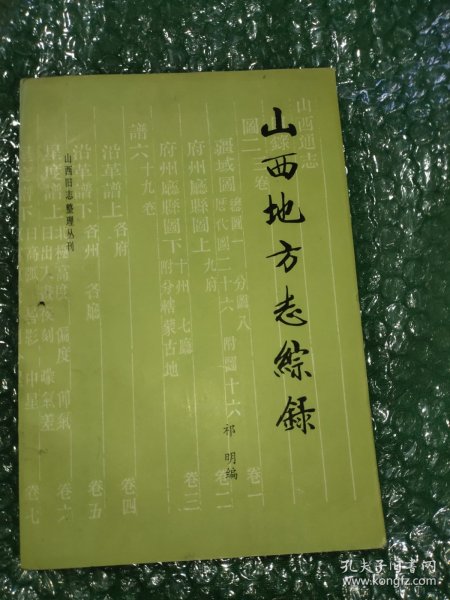 山西地方志綜錄
祁明编
山西旧志整理丛刊
山西通志
圖二 二卷
疆域圖
歷代圖二十六
分圖八
附圖十六
卷一
府州廳縣圖上
九府
卷二
府州廳縣圖下
十州
七廳
附分轄蒙古地
卷三
譜六
十九卷
沿革譜上
各府
卷四
沿革譜下
各州
各廳
卷五
星度譜上
極高度
偏度
卷六
星度譜下
日高弧
中星
卷七
孔夫子旧书网
kongfz.com